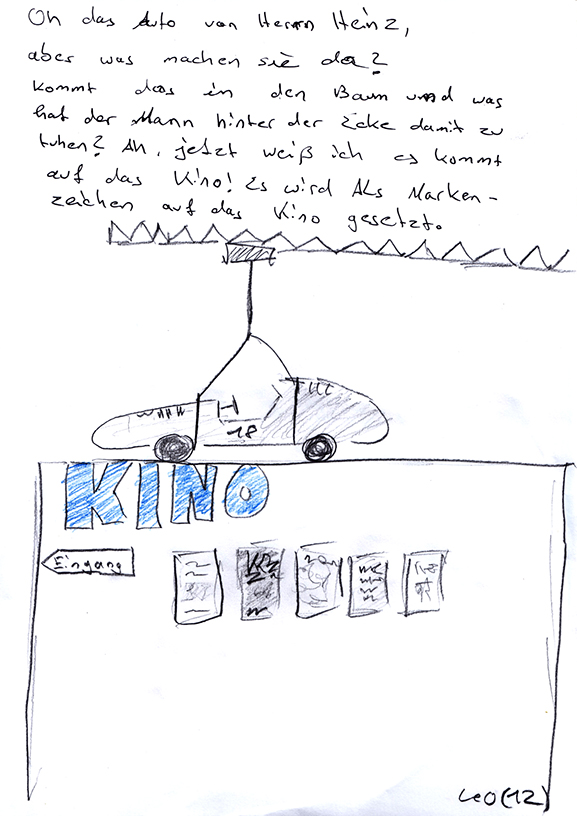 Oh das Auto von Herrn Heinz,
aber was machen sie da?
kommt das in den Baum und was
hat der Mann hinter der Ecke damit zu
tuhen? Ah, jetzt weiß ich es kommt
auf das Kino! Es wird Als Marken-
zeichen auf das Kino gesetzt.
H
18
KINO
Eingang
Leo(12)